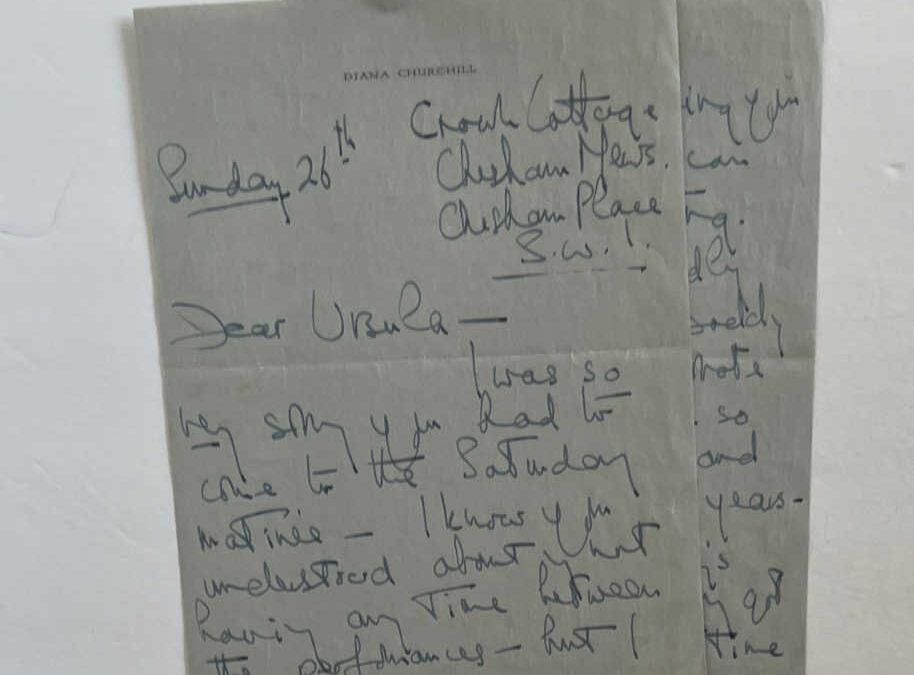 DIANA CHURCHILL
Crouch Cottage
Sunday 26th
Chesham Mews.
Chesham Place
S.W.1.
Dear Ursula —
I was so
very sorry you had to
come to the Saturday
matinée — I know you
understood about not
having any time between
the performances — but I
ing you
can
ng.
dly
note
. so
and
years -
is
y got
time